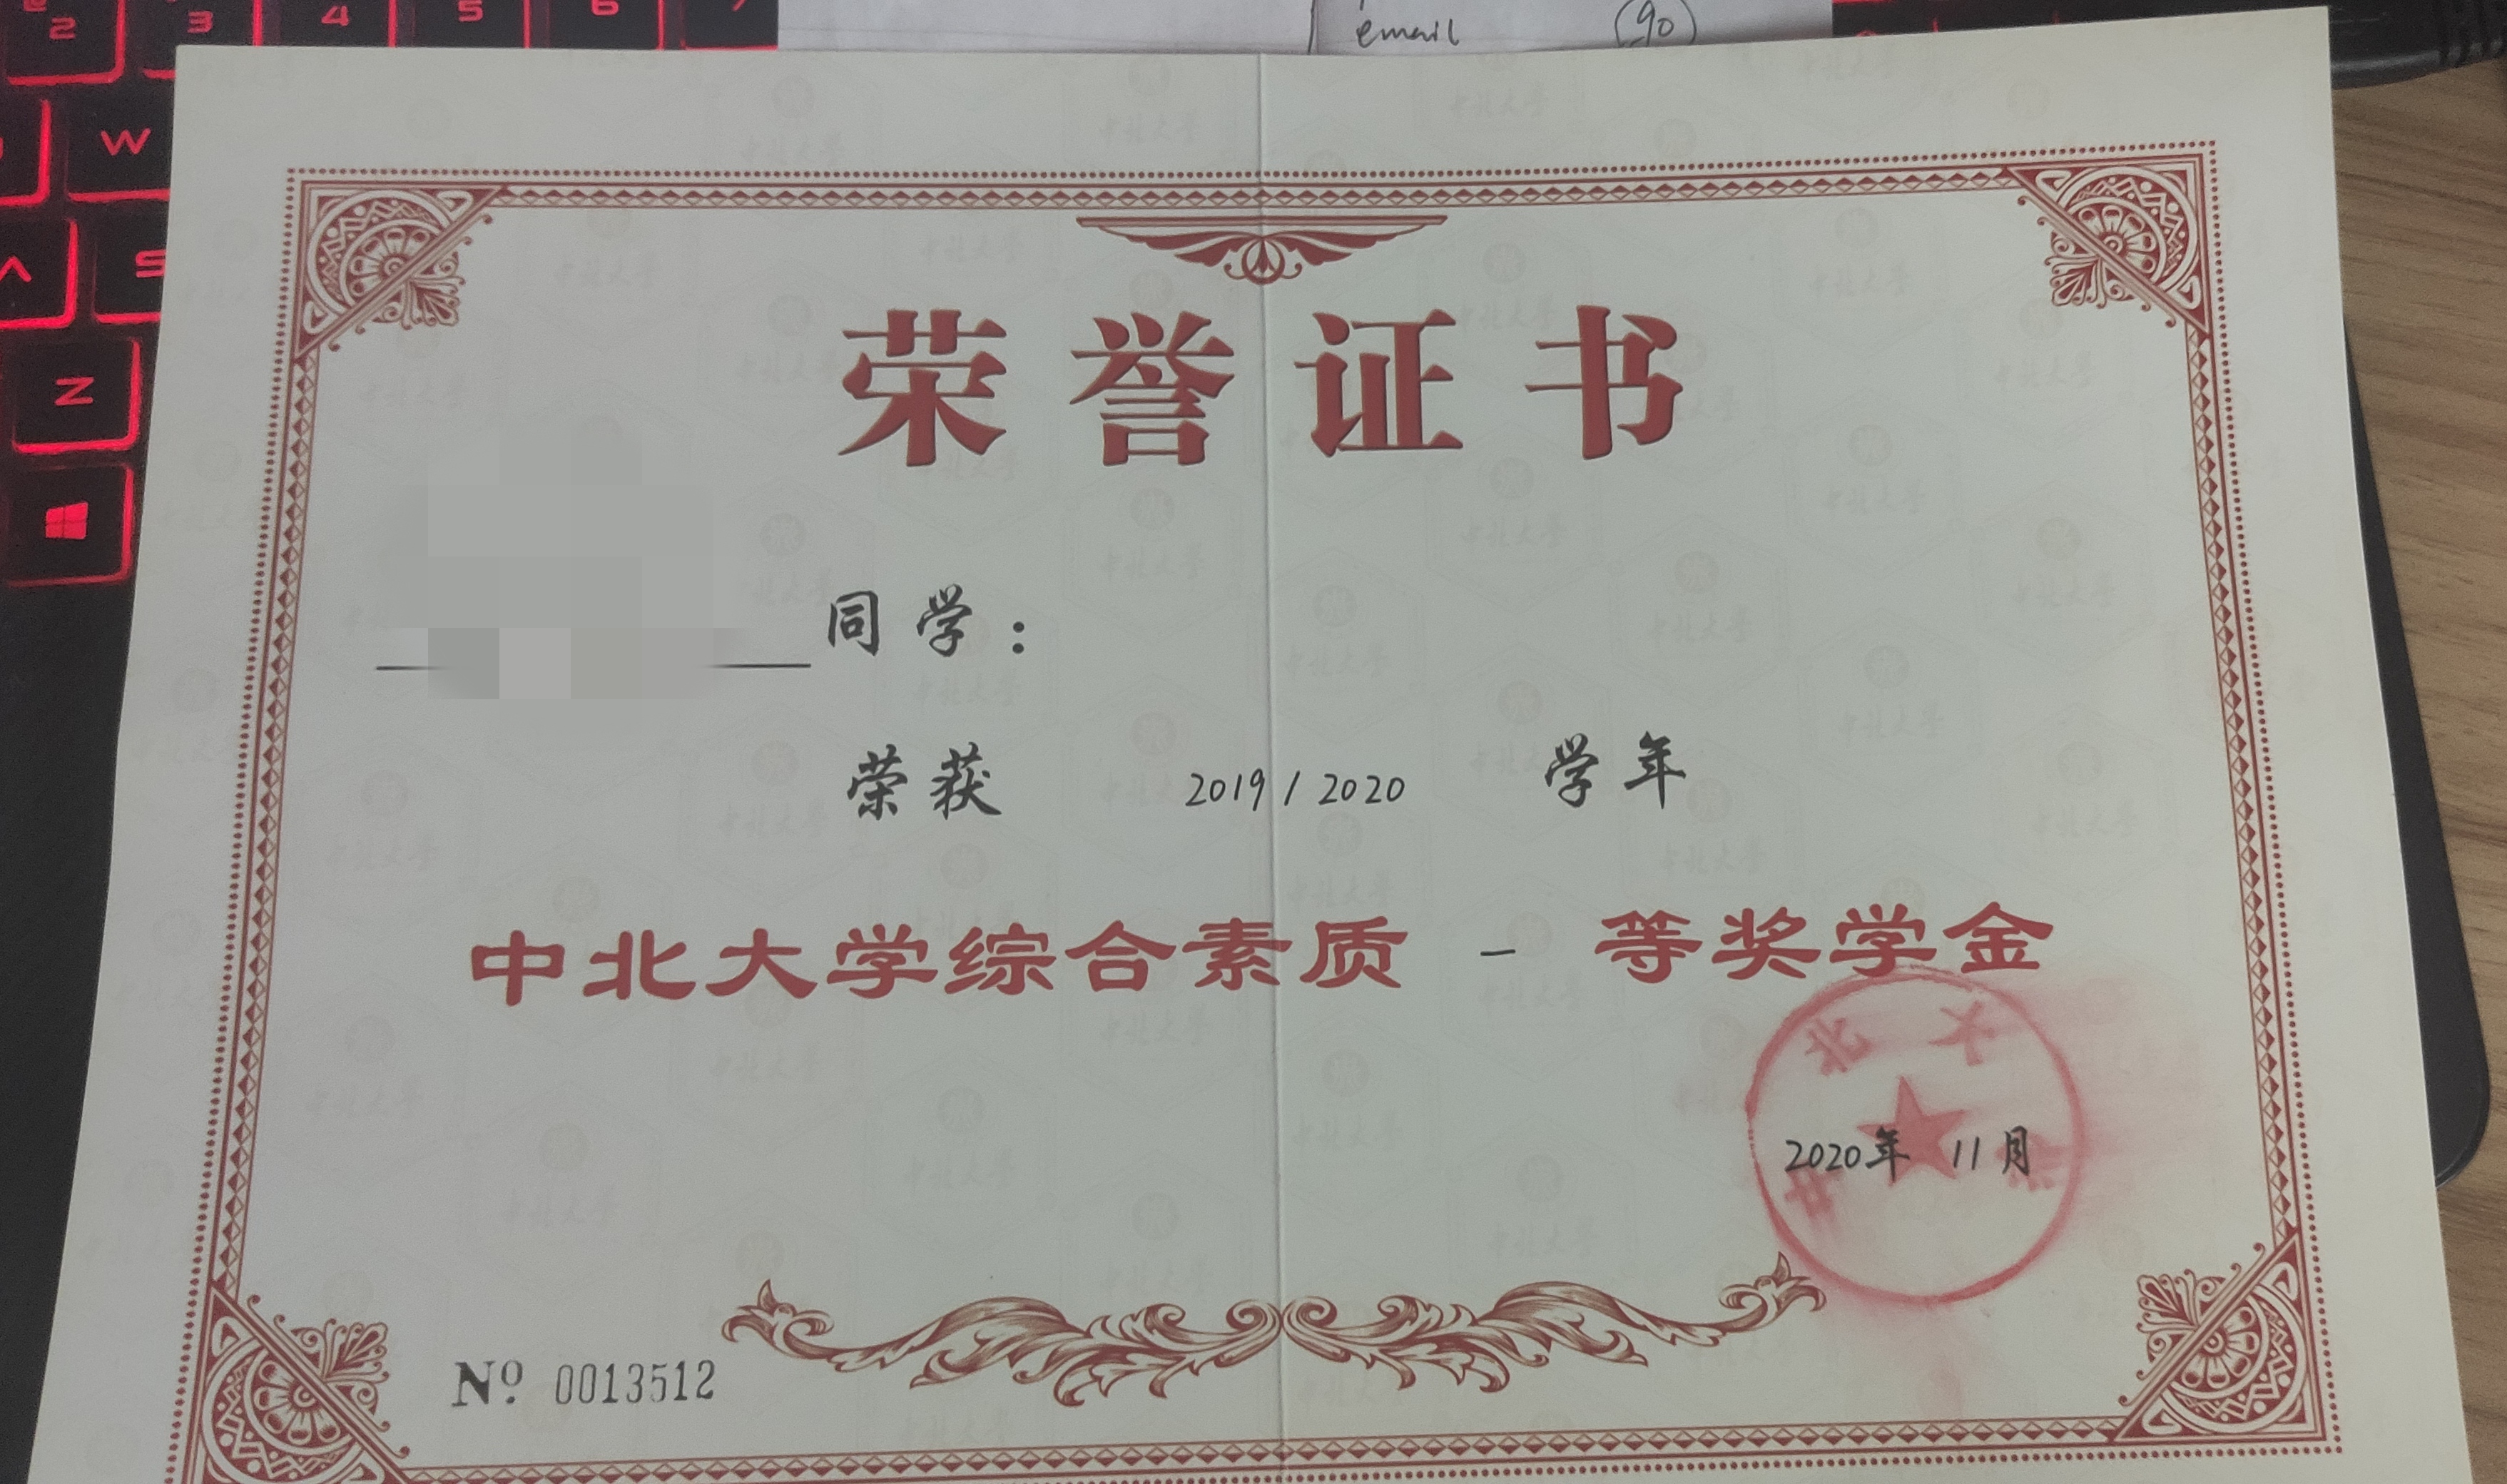 2 3 4 5 6 7
email 90
W
S
Z
荣誉证书
同学：
荣获 2019/2020 学年
中北大学综合素质 一 等奖学金
中北大学
2020年 11月
Nº 0013512